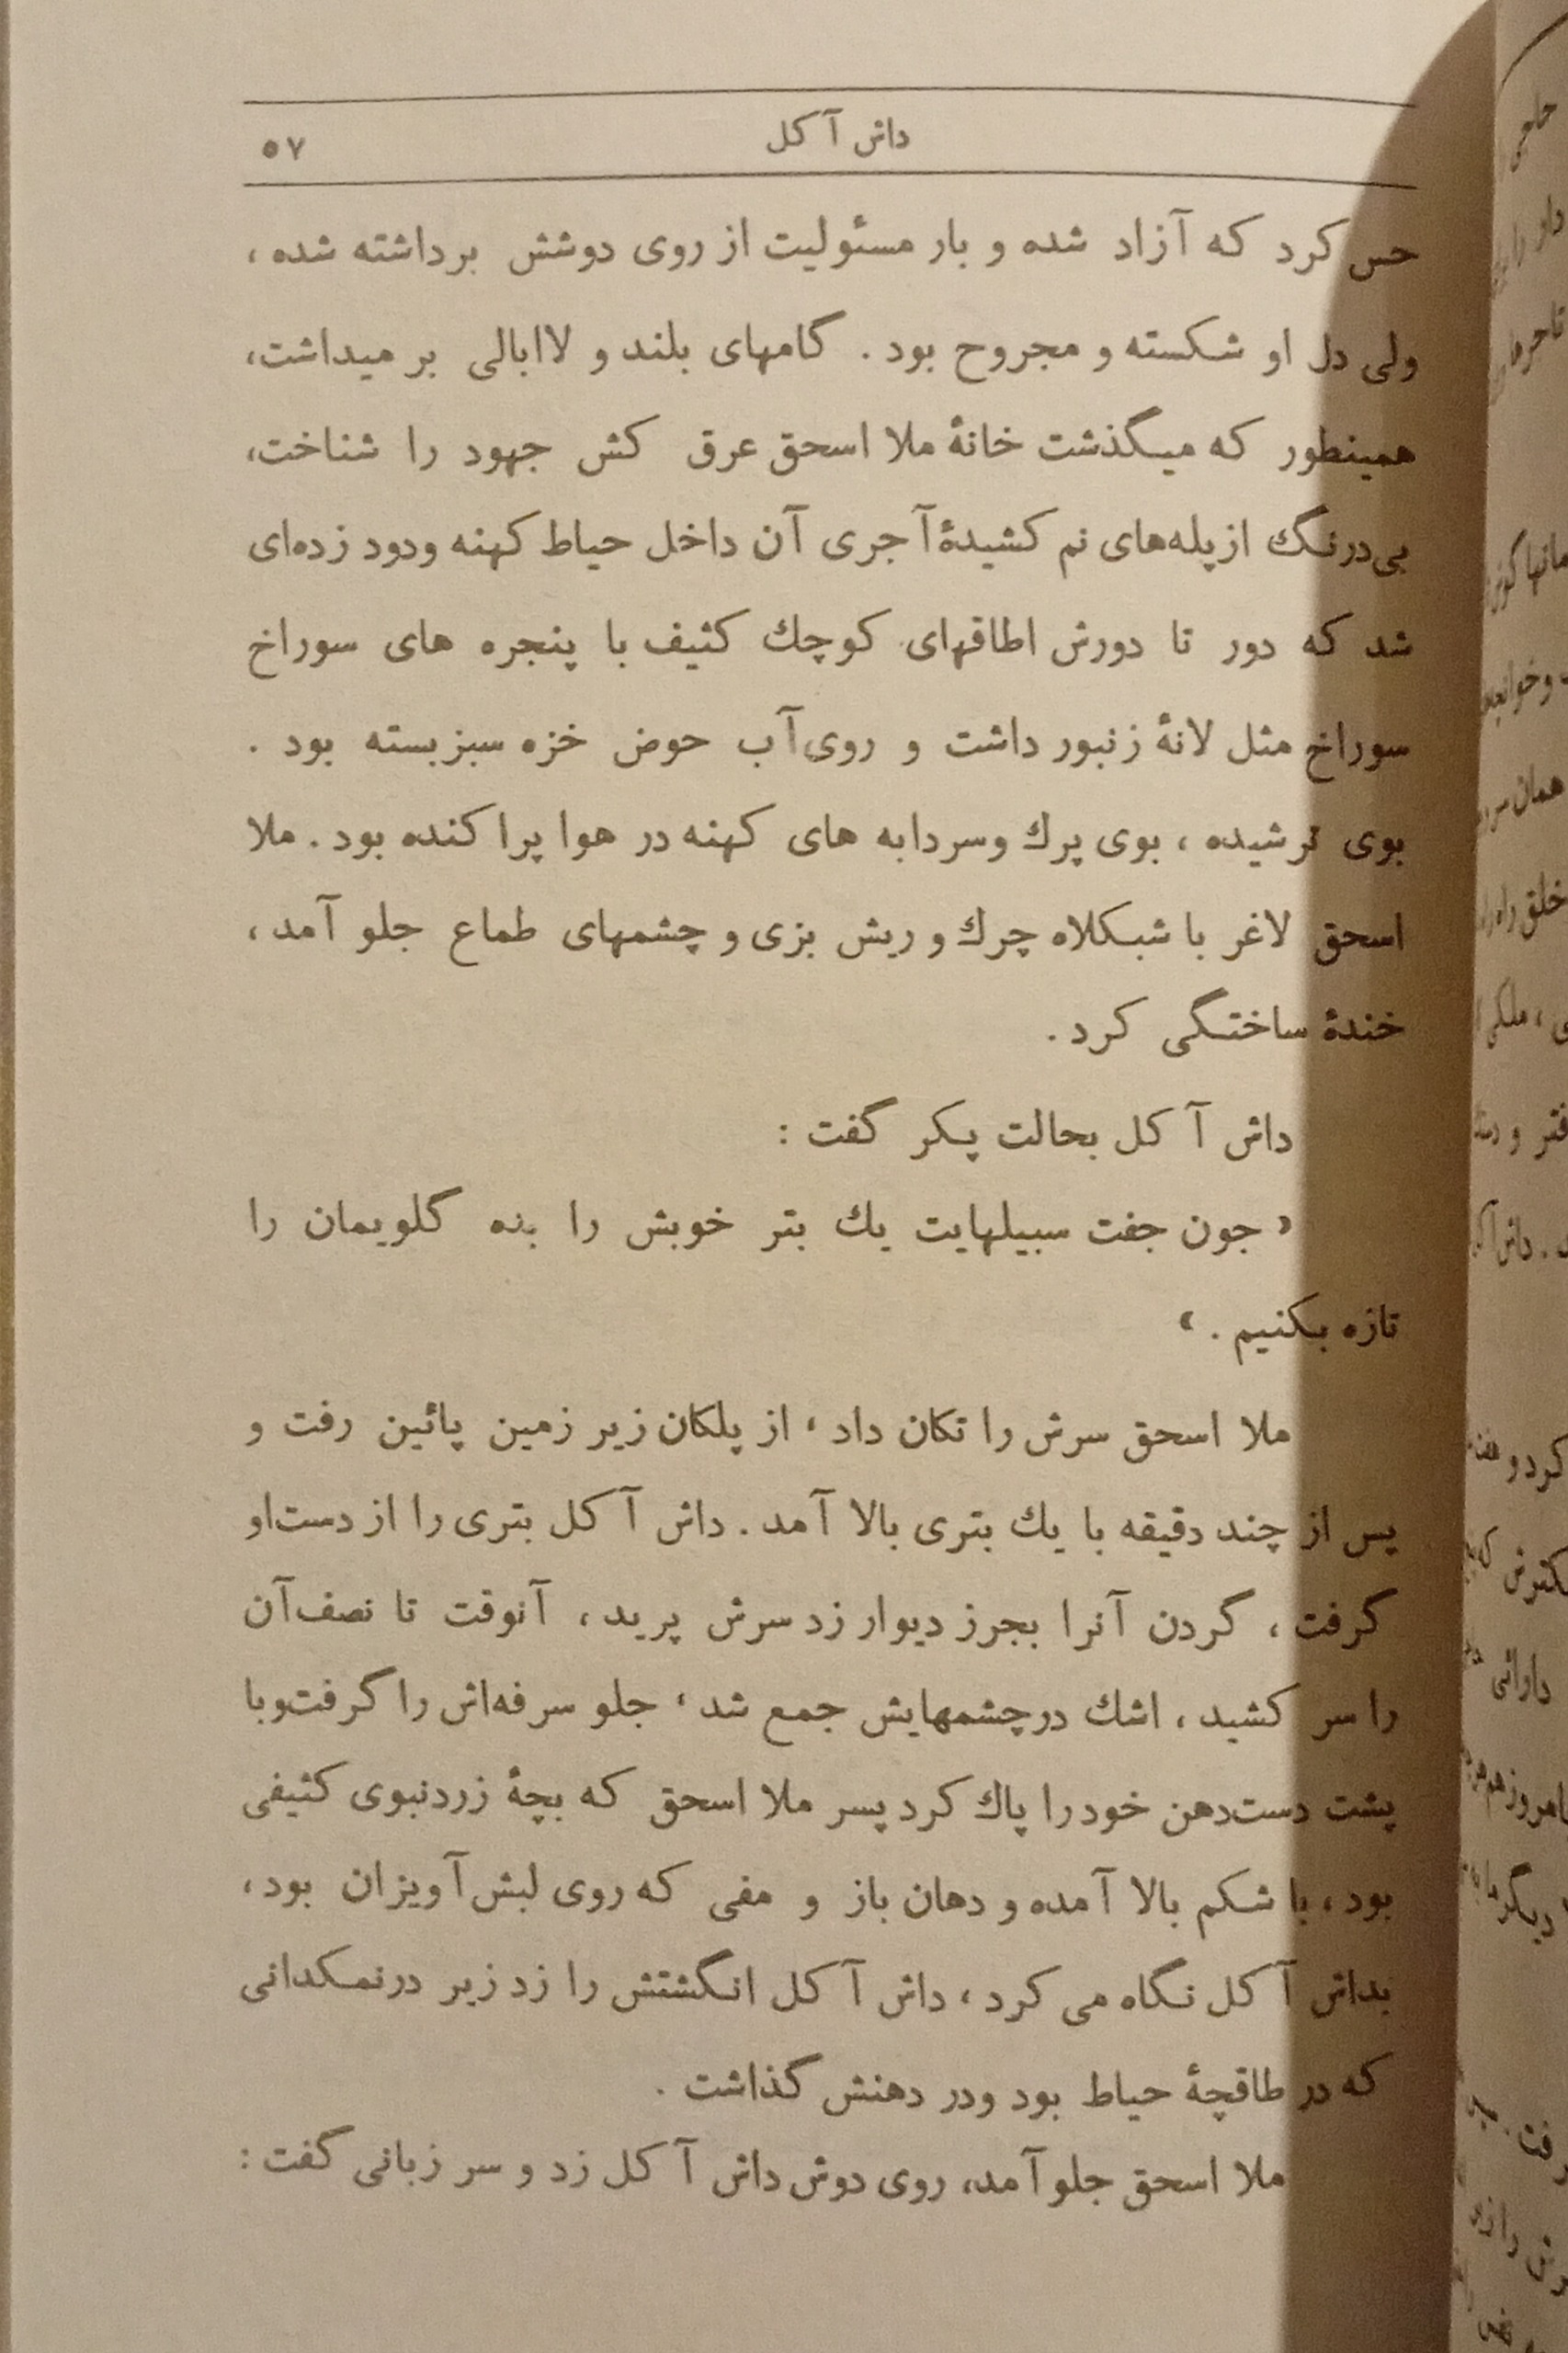 داش آكل ۵۷
حس كرد كه آزاد شده و بار مسئولیت از روی دوشش برداشته شده ،
ولی دل او شكسته و مجروح بود . گامهای بلند و لاابالی بر میداشت،
همینطور كه میگذشت خانهٔ ملا اسحق عرق كش جهود را شناخت،
بی‌درنگ از پله‌های نم كشیدهٔ آجری آن داخل حیاط كهنه ودود زده‌ای
شد كه دور تا دورش اطاقهای كوچك كثیف با پنجره های سوراخ
سوراخ مثل لانهٔ زنبور داشت و روی آب حوض خزه سبز بسته بود .
بوی ترشیده ، بوی پرك وسردابه های كهنه در هوا پراكنده بود . ملا
اسحق لاغر با شبكلاه چرك و ریش بزی و چشمهای طماع جلو آمد ،
خندهٔ ساختگی كرد .
داش آكل بحالت پكر گفت :
« جون جفت سبیلهایت یك بتر خوبش را بده گلویمان را
تازه بكنیم . »
ملا اسحق سرش را تكان داد ، از پلكان زیر زمین پائین رفت و
پس از چند دقیقه با یك بتری بالا آمد . داش آكل بتری را از دست‌او
گرفت ، گردن آنرا بجرز دیوار زد سرش پرید ، آنوقت تا نصف‌آن
را سر كشید ، اشك درچشمهایش جمع شد ، جلو سرفه‌اش را گرفت‌وبا
پشت دست‌دهن خود را پاك كرد پسر ملا اسحق كه بچهٔ زردنبوی كثیفی
بود ، با شكم بالا آمده و دهان باز و مفی كه روی لبش آویزان بود ،
بداش آكل نگاه می كرد ، داش آكل انگشتش را زد زیر درنمكدانی
كه در طاقچهٔ حیاط بود ودر دهنش گذاشت .
ملا اسحق جلو آمد، روی دوش داش آكل زد و سر زبانی گفت :